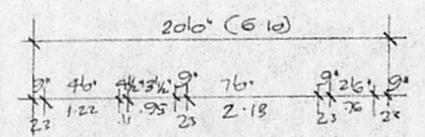 20'0" (6.10)
9" 4'0" 4½" 3'1½" 9" 7'6" 9" 2'6" 9"
23 1.22 11 .95 23 2.13 23 76 23